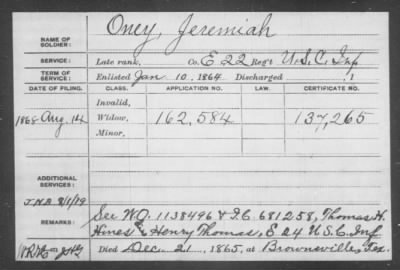 NAME OF SOLDIER: Oney, Jeremiah
SERVICE: Late rank, Co. E 22 Reg't U.S.C. Inf
TERM OF SERVICE: Enlisted Jan. 10, 1864 Discharged , 1
DATE OF FILING. CLASS. APPLICATION NO. LAW. CERTIFICATE NO.
Invalid,
1868 Aug. 14 Widow, 162,584 137,265
Minor,
ADDITIONAL SERVICES:
J.N.B. 8/1/19
REMARKS: See W.O. 1138496 & I.C. 681258, Thomas H.
Hines & Henry Thomas, E 24 U.S.C. Inf
Died Dec. 21, 1865, at Brownsville, Tex.